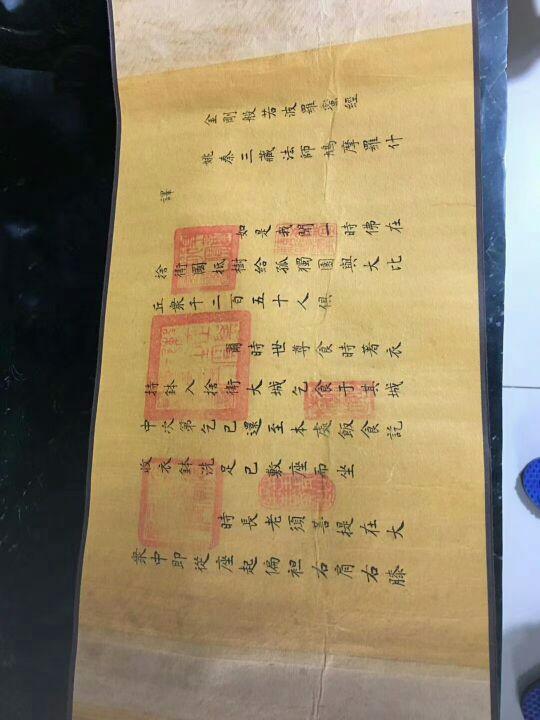 金剛般若波羅蜜經
姚秦三藏法師鳩摩羅什
譯
如是我聞一時佛在
捨衛國祇樹給孤獨園與大比
丘衆千二百五十人俱
爾時世尊食時著衣
持鉢入捨衛大城乞食于其城
中次第乞已還至本處飯食訖
收衣鉢洗足已敷座而坐
時長老須菩提在大
衆中即從座起偏袒右肩右膝